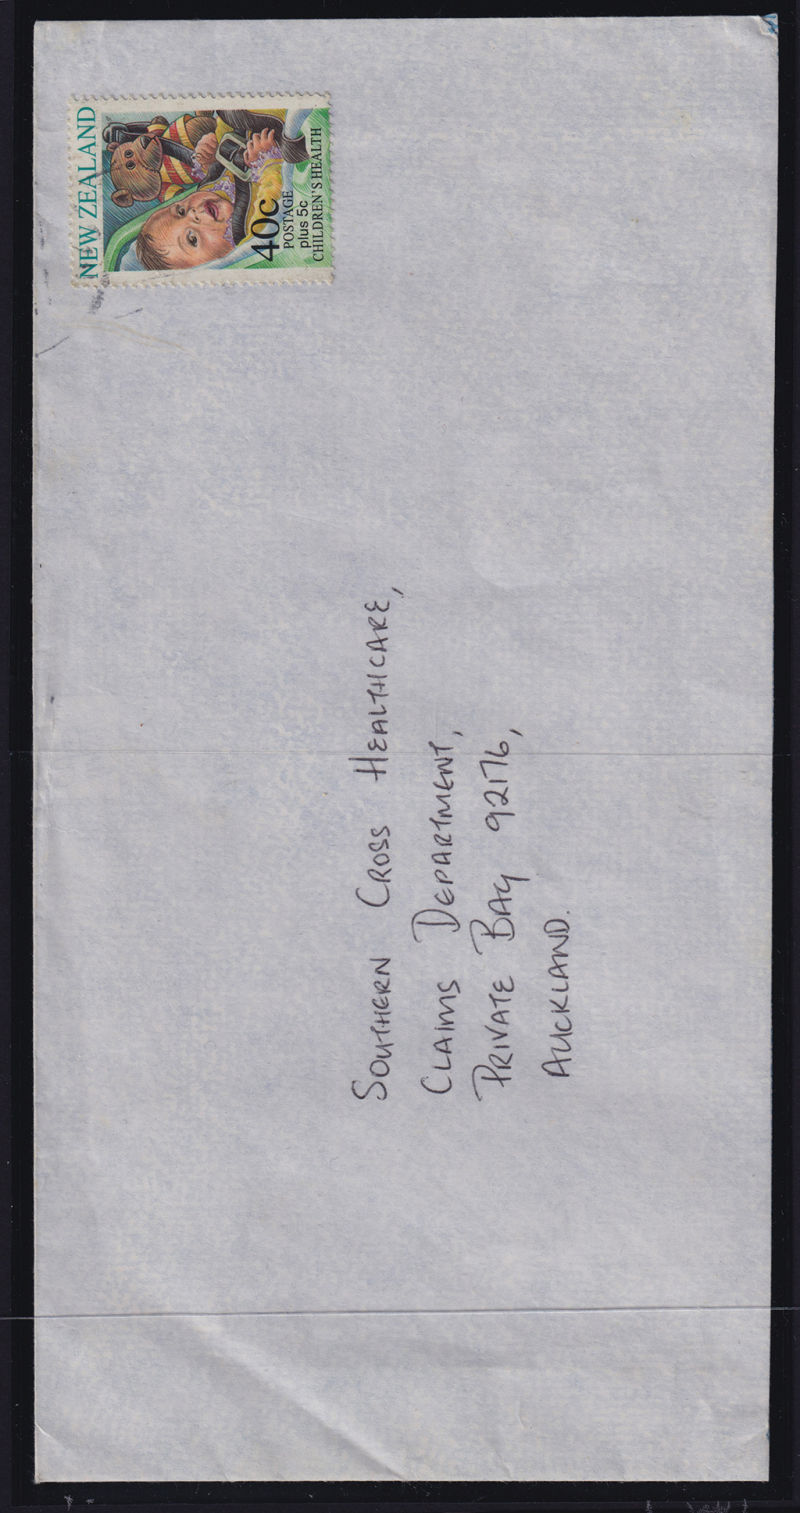 NEW ZEALAND
40c
POSTAGE
plus 5c
CHILDREN'S HEALTH
SOUTHERN CROSS HEALTHCARE,
CLAIMS DEPARTMENT,
PRIVATE BAG 92176,
AUCKLAND.